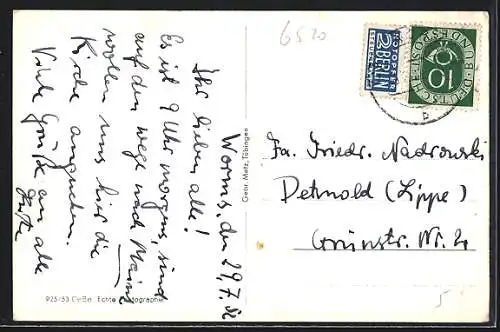 6520
Worms, den 29.7.52
Ihr lieben alle!
Es ist 9 Uhr morgens, sind
auf dem Wege nach Mainz
wollen uns hier die
Kirche ansehen.
Viele Grüße an alle
Gebr. Metz, Tübingen
925/53 Echte Photographie
NOTOPFER
2 BERLIN
STEUERMARKE
DEUTSCHE BUNDESPOST
10
Fa. Friedr. Nadrowski
Detmold (Lippe)
Grünstr. Nr.